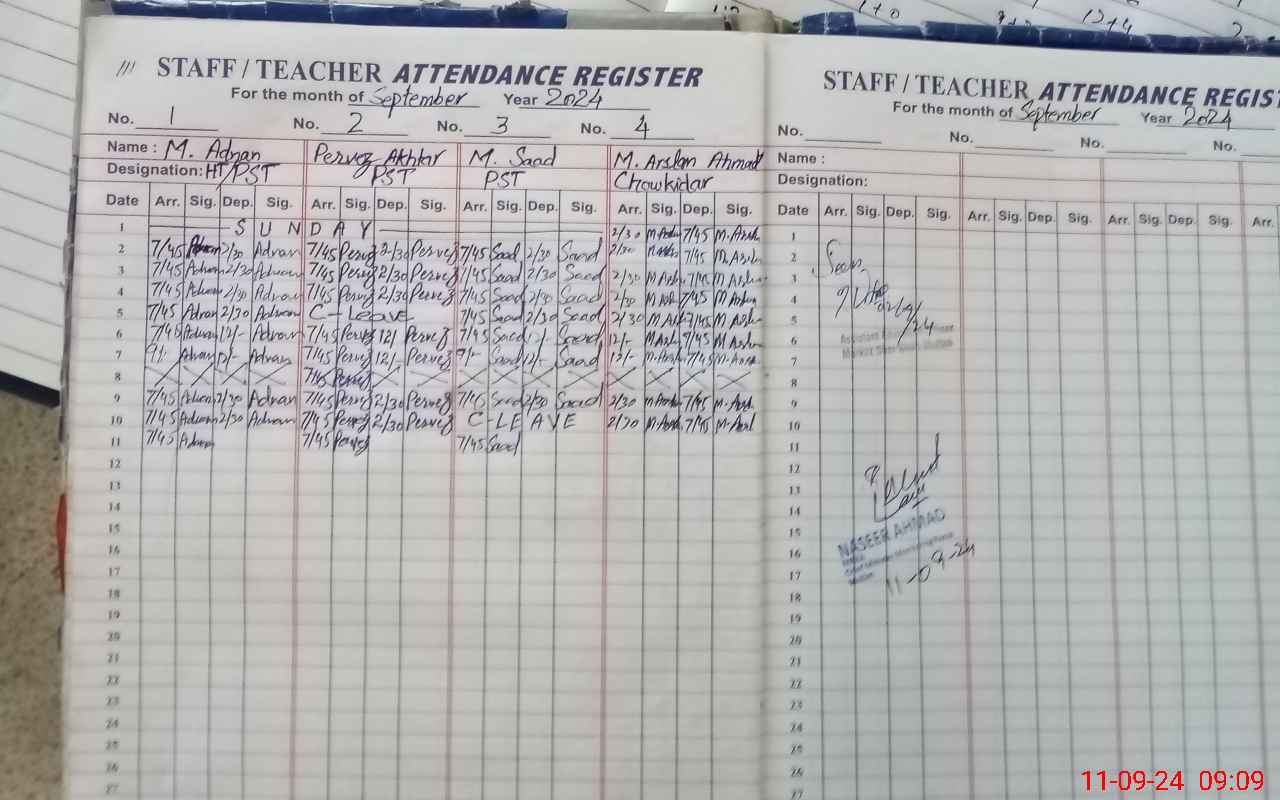 111 STAFF / TEACHER ATTENDANCE REGISTER
For the month of September Year 2024
No. 1 No. 2 No. 3 No. 4
Name : M. Adnan Pervez Akhtar M. Saad M. Arslan Ahmad
Designation: HT/PST PST PST Chowkidar
Date Arr. Sig. Dep. Sig. Arr. Sig. Dep. Sig. Arr. Sig. Dep. Sig. Arr. Sig. Dep. Sig.
1 SUNDAY 2/30 7/45
2 7/45 Adnan 2/30 Adnan 7/45 Pervez 2/30 Pervez 7/45 Saad 2/30 Saad 2/30 7/45
3 7/45 Adnan 2/30 Adnan 7/45 Pervez 2/30 Pervez 7/45 Saad 2/30 Saad 2/30 7/45
4 7/45 Adnan 2/30 Adnan 7/45 Pervez 2/30 Pervez 7/45 Saad 2/30 Saad 2/30 7/45
5 7/45 Adnan 2/30 Adnan C-Leave 7/45 Saad 2/30 Saad 2/30 7/45
6 7/45 Adnan 12/- Adnan 7/45 Pervez 12/- Pervez 7/45 Saad 12/- Saad 12/- 7/45
7 9/- Adnan 12/- Adnan 7/45 Pervez 12/- Pervez 9/- Saad 12/- Saad 12/- 7/45
8 7/45 Pervez
9 7/45 Adnan 2/30 Adnan 7/45 Pervez 2/30 Pervez 7/45 Saad 2/30 Saad 2/30 7/45
10 7/45 Adnan 2/30 Adnan 7/45 Pervez 2/30 Pervez C-LEAVE 2/30 7/45
11 7/45 Adnan 7/45 Pervez 7/45 Saad
12
13
14
15
16
17
18
19
20
21
22
23
24
25
26
27
STAFF / TEACHER ATTENDANCE REGIS
For the month of September Year 2024
No. No. No. No.
Name :
Designation:
Date Arr. Sig. Dep. Sig. Arr. Sig. Dep. Sig. Arr. Sig. Dep. Sig. Arr. Sig.
1
2 Seen
3
4
5 02/9/24
6
7
8
9
10
11
12
13
14
15 NASEER AHMAD
16
17 11-09-24
18
19
20
21
22
23
24
25
26
27
11-09-24 09:09